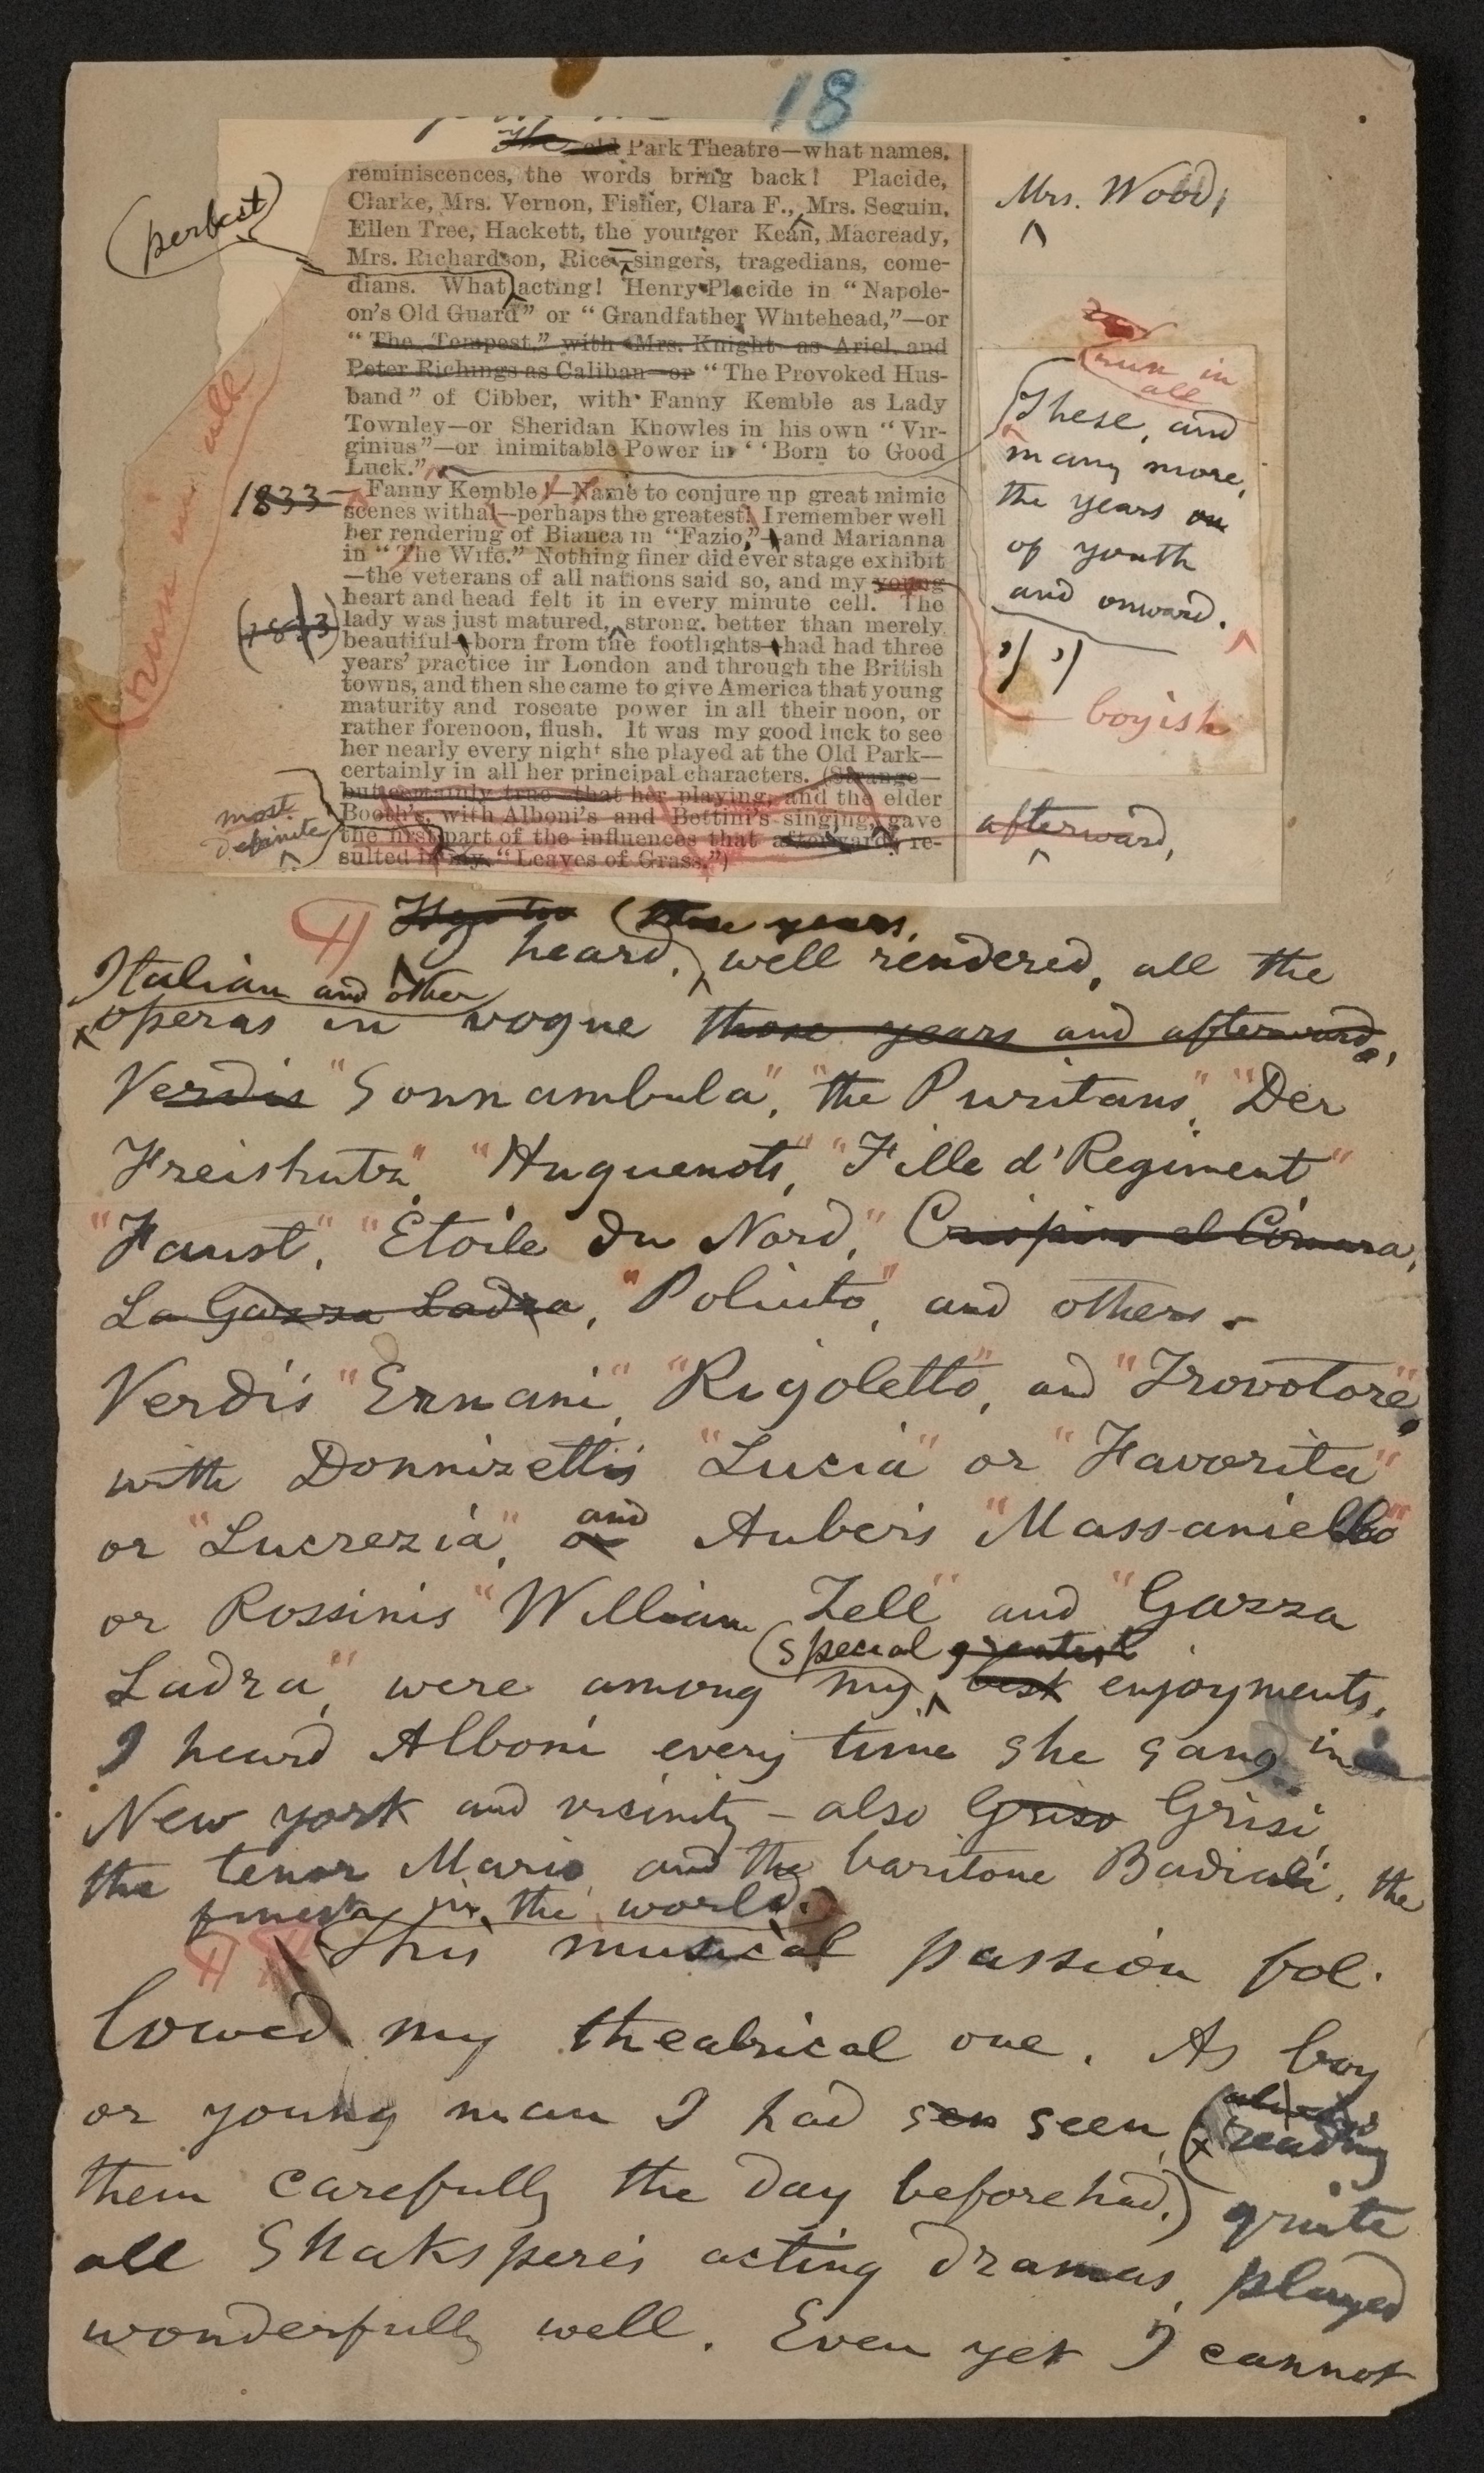 18
The old Park Theatre—what names,
reminiscences, the words bring back! Placide,
Clarke, Mrs. Vernon, Fisher, Clara F., Mrs. Seguin,
Mrs. Wood,
Ellen Tree, Hackett, the younger Kean, Macready,
Mrs. Richardson, Rice—singers, tragedians, come-
dians. What acting! Henry Placide in "Napole-
perfect
on's Old Guard" or "Grandfather Whitehead,"—or
"The Tempest," with Mrs. Knight as Ariel and
Peter Richings as Caliban—or "The Provoked Hus-
band" of Cibber, with Fanny Kemble as Lady
Townley—or Sheridan Knowles in his own "Vir-
ginius"—or inimitable Power in "Born to Good
Luck."
run in
all
These, and
many more,
the years on
of youth
and onward.
run in all
1833—
Fanny Kemble!—Name to conjure up great mimic
scenes withal—perhaps the greatest! I remember well
her rendering of Bianca in "Fazio,"—and Marianna
in "The Wife." Nothing finer did ever stage exhibit
—the veterans of all nations said so, and my young
boyish
heart and head felt it in every minute cell. The
lady was just matured, strong, better than merely
(1833)
beautiful—born from the footlights—had had three
years' practice in London and through the British
towns, and then she came to give America that young
maturity and roseate power in all their noon, or
rather forenoon, flush. It was my good luck to see
her nearly every night she played at the Old Park—
certainly in all her principal characters. (Strange—
but certainly true—that her playing, and the elder
Booth's, with Alboni's and Bettini's singing, gave
the first part of the influences that afterward re-
most
definite
afterward,
sulted in my "Leaves of Grass.")
(these years,
I heard, well rendered, all the
Italian and other
operas in vogue those years and afterward,
Verdis "Sonnambula," "the Puritans," "Der
Freishutz," "Huguenots," "Fille d'Regiment"
"Faust," "Etoile du Nord," Crispino el Comara,
La Gazza Ladra, "Poliuto," and others.
Verdi's "Ernani," "Rigoletto," and "Trovotore,"
with Donnizetti's "Lucia" or "Favorita"
or "Lucrezia," or and Auber's "Massaniello"
or Rossini's "William Tell" and "Gazza
special greatest
Ladra," were among my best enjoyments.
I heard Alboni every time she sang in
New York and vicinity – also Griso Grisi,
the tenor Mario, and the baritone Badiali, the
finest in the world.
This musical passion fol-
lowed my theatrical one. As boy
or young man I had sen seen, (reading
them carefully the day beforehad,) quite
all Shakspere's acting dramas, played
wonderfully well. Even yet I cannot